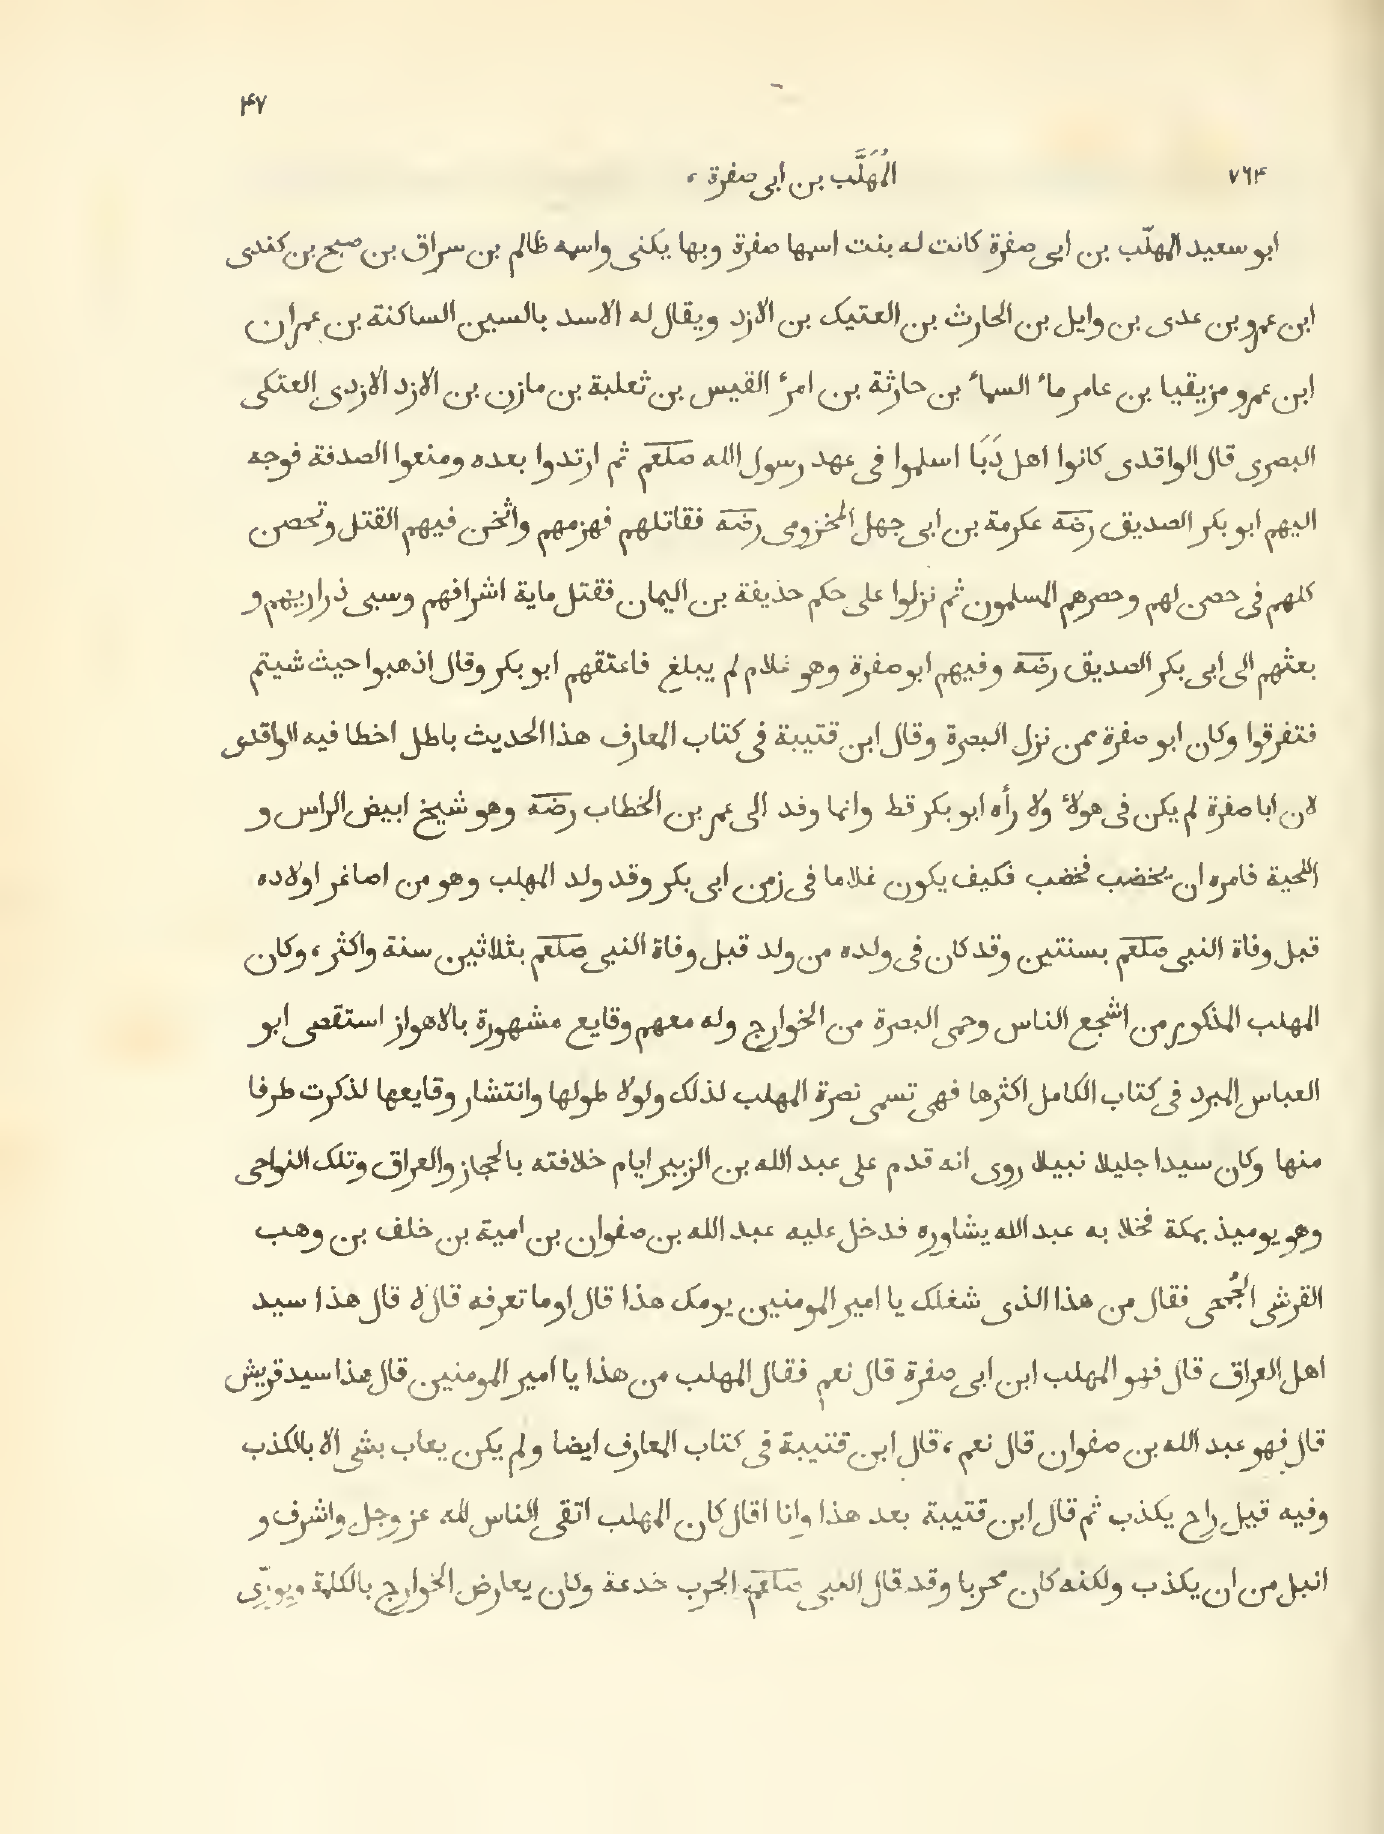 ۴۷
۷۶۴ المُهَلَّب بن ابى صفرة ،
ابو سعيد المهلّب بن ابى صفرة كانت له بنت اسمها صفرة وبها يكنى واسمه ظالم بن سراق بن صبح بن كندى
ابن عمرو بن عدى بن وايل بن الحارث بن العتيك بن الازد ويقال له الاسد بالسين الساكنة بن عمران
ابن عمرو مزيقيا بن عامر ماء السماء بن حارثة بن امرء القيس بن ثعلبة بن مازن بن الازد الازدى العتكى
البصرى قال الواقدى كانوا اهل دَبَا اسلموا فى عهد رسول الله صلعم ثم ارتدوا بعده ومنعوا الصدقة فوجه
اليهم ابو بكر الصديق رضه عكرمة بن ابى جهل المخزومى رضه فقاتلهم فهزمهم واثخن فيهم القتل وتحصن
كلهم فى حصن لهم وحصرهم المسلمون ثم نزلوا على حكم حذيفة بن اليمان فقتل ماية اشرافهم وسبى ذراريهم و
بعثهم الى ابى بكر الصديق رضه وفيهم ابو صفرة وهو غلام لم يبلغ فاعتقهم ابو بكر وقال اذهبوا حيث شيتم
فتفرقوا وكان ابو صفرة ممن نزل البصرة وقال ابن قتيبة فى كتاب المعارف هذا الحديث باطل اخطا فيه الواقدى
لان ابا صفرة لم يكن فى هولاء ولا رأه ابو بكر قط وانما وفد الى عمر بن الخطاب رضه وهو شيخ ابيض الراس و
اللحية فامره ان يخضب فخضب فكيف يكون غلاما فى زمن ابى بكر وقد ولد المهلب وهو من اصاغر اولاده
قبل وفاة النبى صلعم بسنتين وقد كان فى ولده من ولد قبل وفاة النبى صلعم بثلاثين سنة واكثر ، وكان
المهلب المذكور من اشجع الناس وحمى البصرة من الخوارج وله معهم وقايع مشهورة بالاهواز استقصى ابو
العباس المبرد فى كتاب الكامل اكثرها فهى تسمى نصرة المهلب لذلك ولولا طولها وانتشار وقايعها لذكرت طرفا
منها وكان سيدا جليلا نبيلا روى انه قدم على عبد الله بن الزبير ايام خلافته بالحجاز والعراق وتلك النواحى
وهو يوميذ بمكة فخلا به عبد الله يشاوره فدخل عليه عبد الله بن صفوان بن امية بن خلف بن وهب
القرشى الجُمحى فقال من هذا الذى شغلك يا امير المومنين يومك هذا قال اوما تعرفه قال لا قال هذا سيد
اهل العراق قال فهو المهلب ابن ابى صفرة قال نعم فقال المهلب من هذا يا امير المومنين قال هذا سيد قريش
قال فهو عبد الله بن صفوان قال نعم ، قال ابن قتيبة فى كتاب المعارف ايضا ولم يكن يعاب بشى الا بالكذب
وفيه قيل راح يكذب ثم قال ابن قتيبة بعد هذا وانا اقال كان المهلب اتقى الناس لله عز وجل واشرف و
انبل من ان يكذب ولكنه كان محربا وقد قال النبى صلعم الحرب خدعة وكان يعارض الخوارج بالكلمة ويورّى